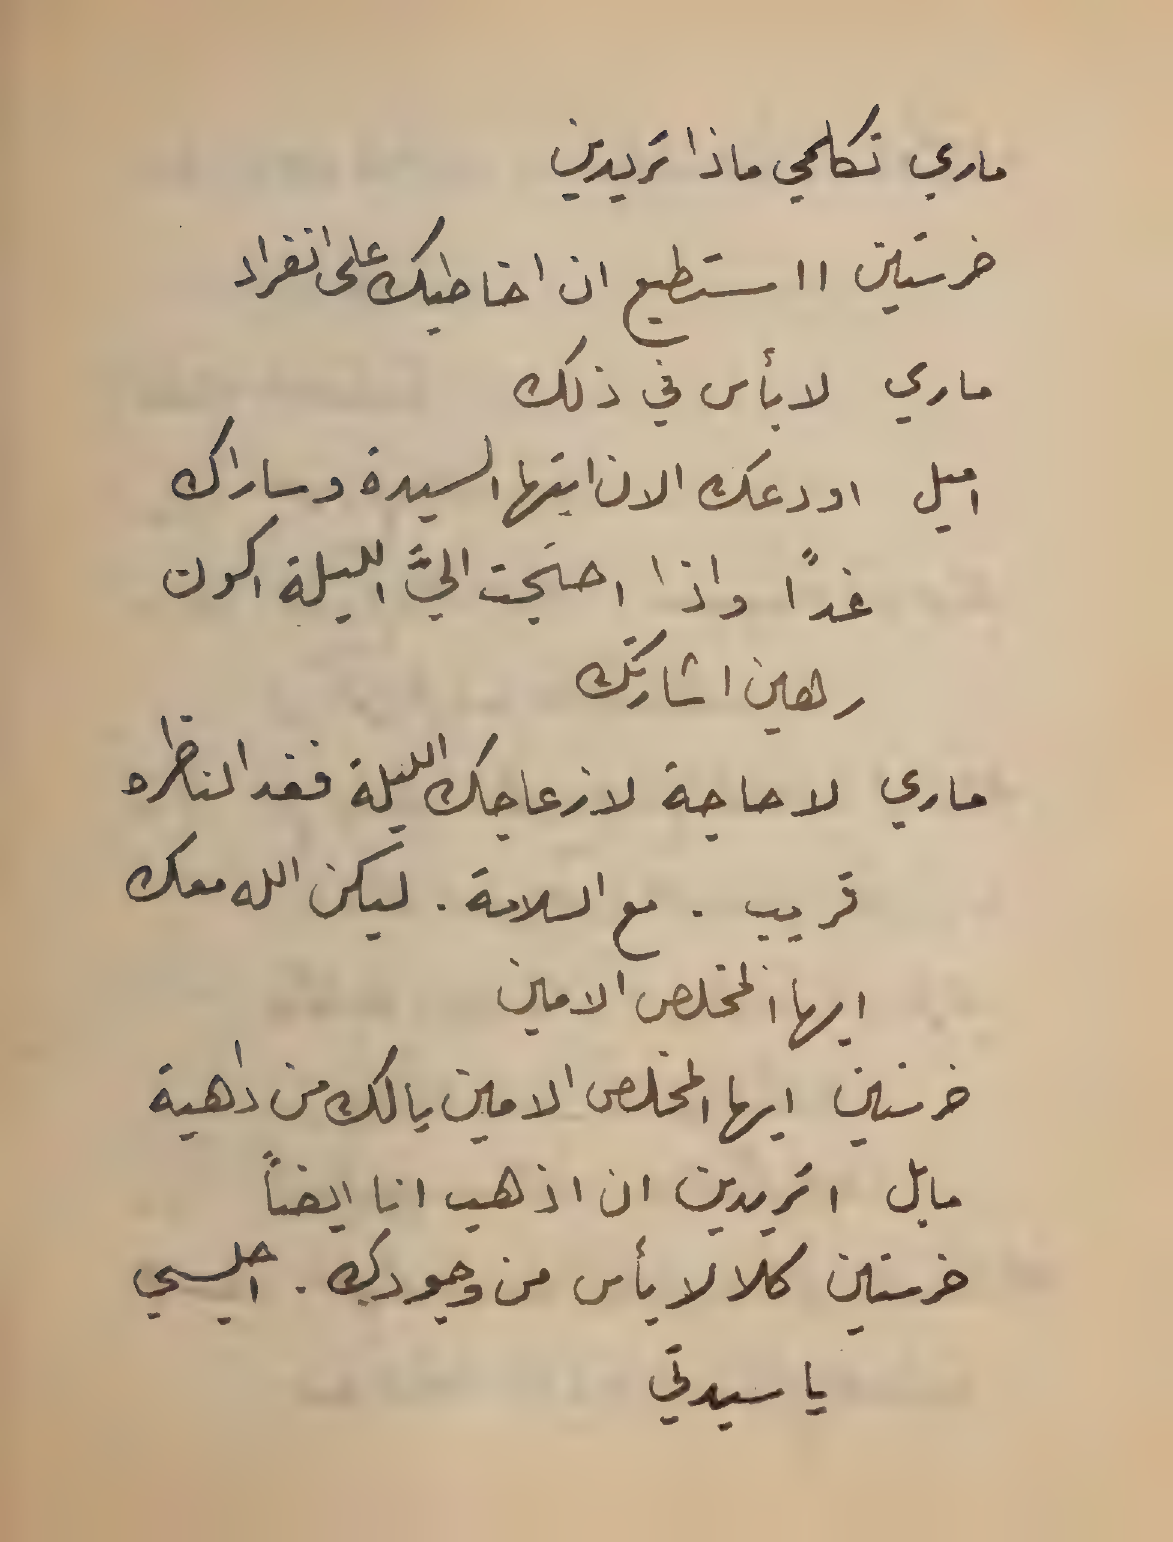 ماري تكلمي ماذا تريدين
خرستين ااستطيع ان اخاطبك على انفراد
ماري لا بأس في ذلك
اميل اودعك الان ايتها السيدة وساراك
غداً واذا احتجت اليَّ الليلة اكون
رهين اشارتك
ماري لا حاجة لازعاجك الليلة فغد المناظره
قريب . مع السلامة . ليكن الله معك
ايها المخلص الامين
خرستين ايها المخلص الامين يالك من داهية
مابل اتريدين ان اذهب انا ايضاً
خرستين كلا لا بأس من وجودك . اجلسي
يا سيدتي